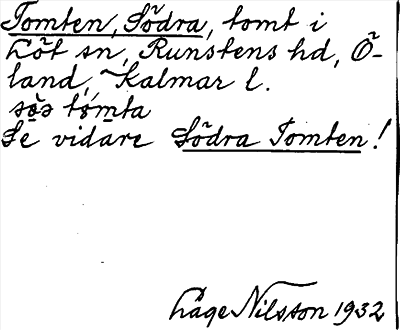 Tomten, Södra, tomt i
Löt sn, Runstens hd, Ö-
land, Kalmar l.
Se vidare Södra Tomten!
Låge Nilsson 1932